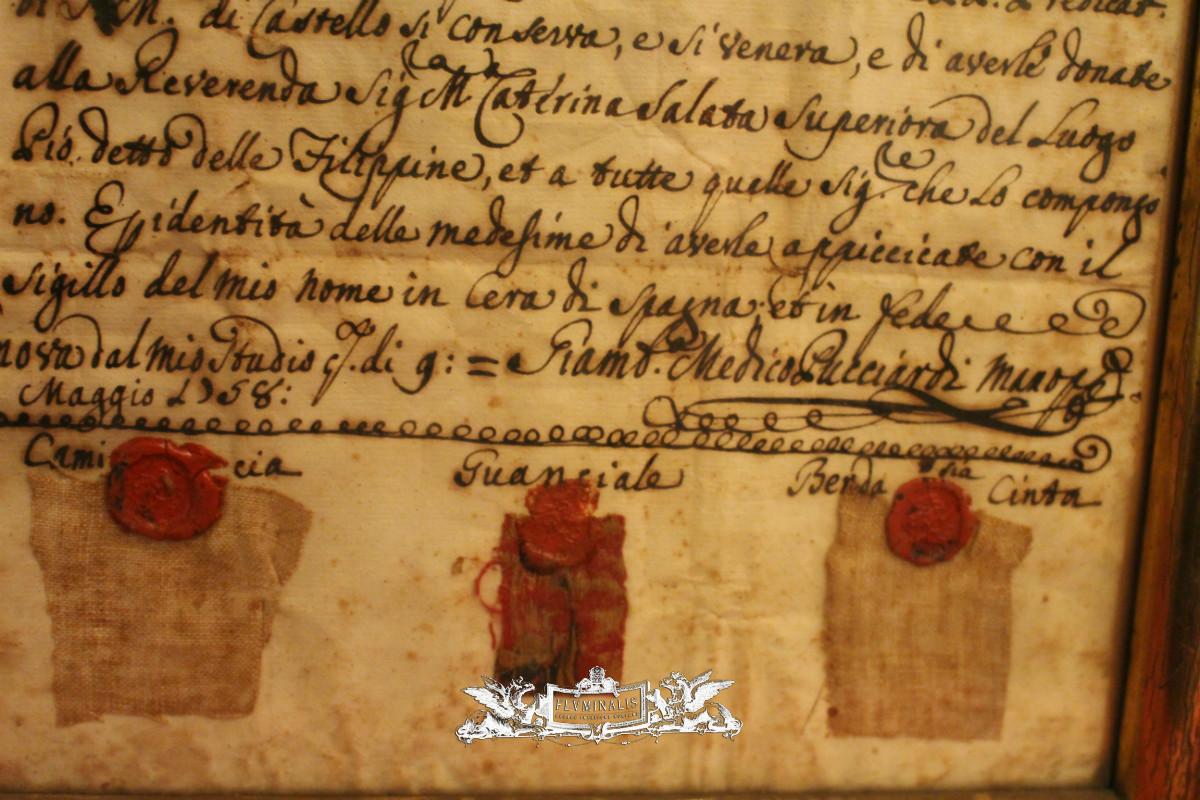 di S. M. di Castello si conserva, e si venera, e di averle donate
alla Reverenda Sig.ra M.a Catérina Salata Superiora del Luogo
Pió detto delle Filippine, et a tutte quelle Sig.re che Lo compongo
no. E p identità delle medesime di averle appiccicate con il
Sigillo del mio nome in Cera di Spagna: et in fede
nova dal mio Studio q. di 9: = Giamb.a Medico Pucciardi mano pp.
Maggio 1758:
Camicia
Guanciale
Benda sia Cinta
FLVMINALIS